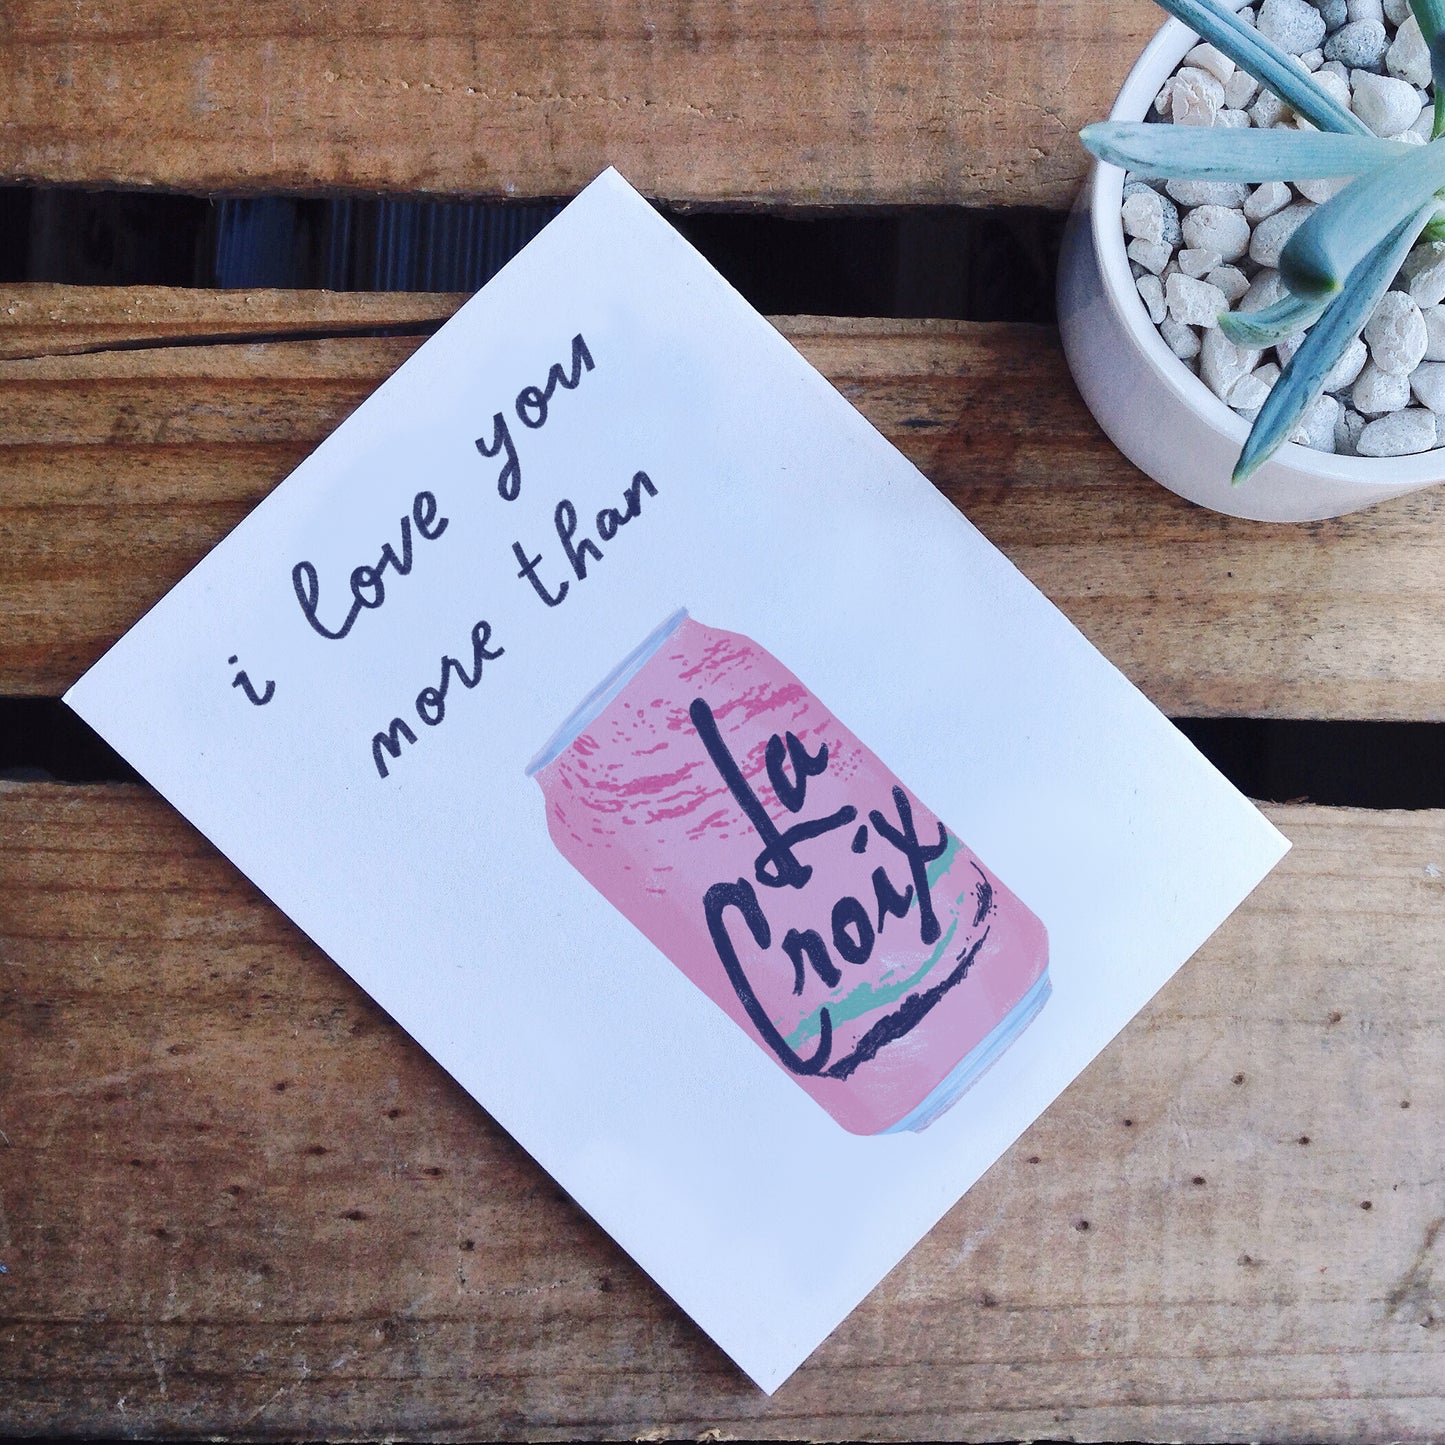 i love you
more than
La
Croix